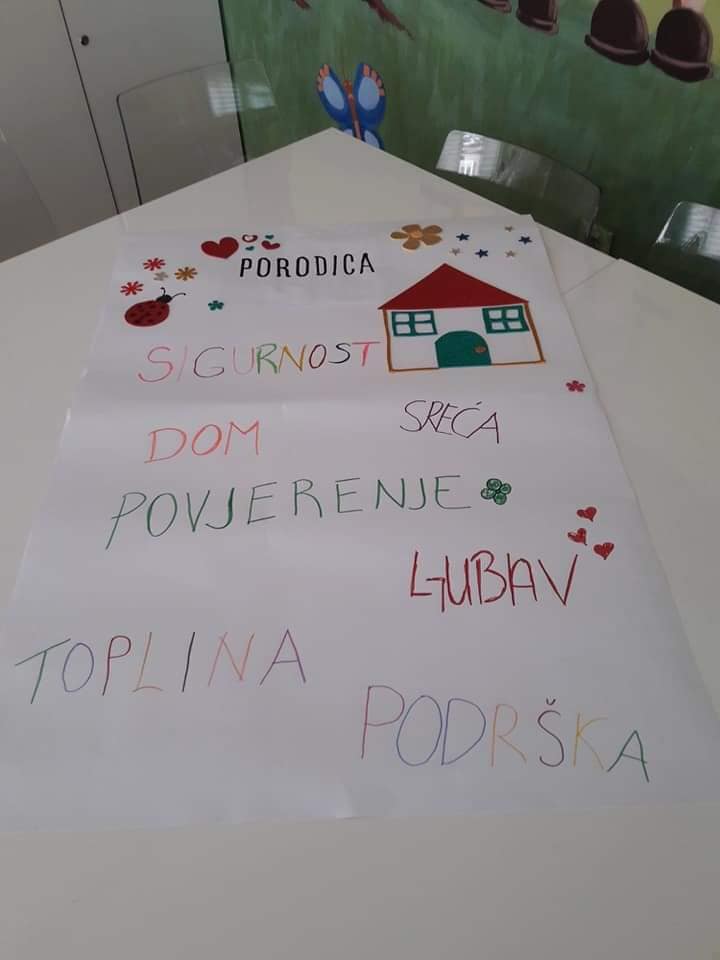 PORODICA
SIGURNOST
SREĆA
DOM
POVJERENJE
LJUBAV
TOPLINA
PODRŠKA